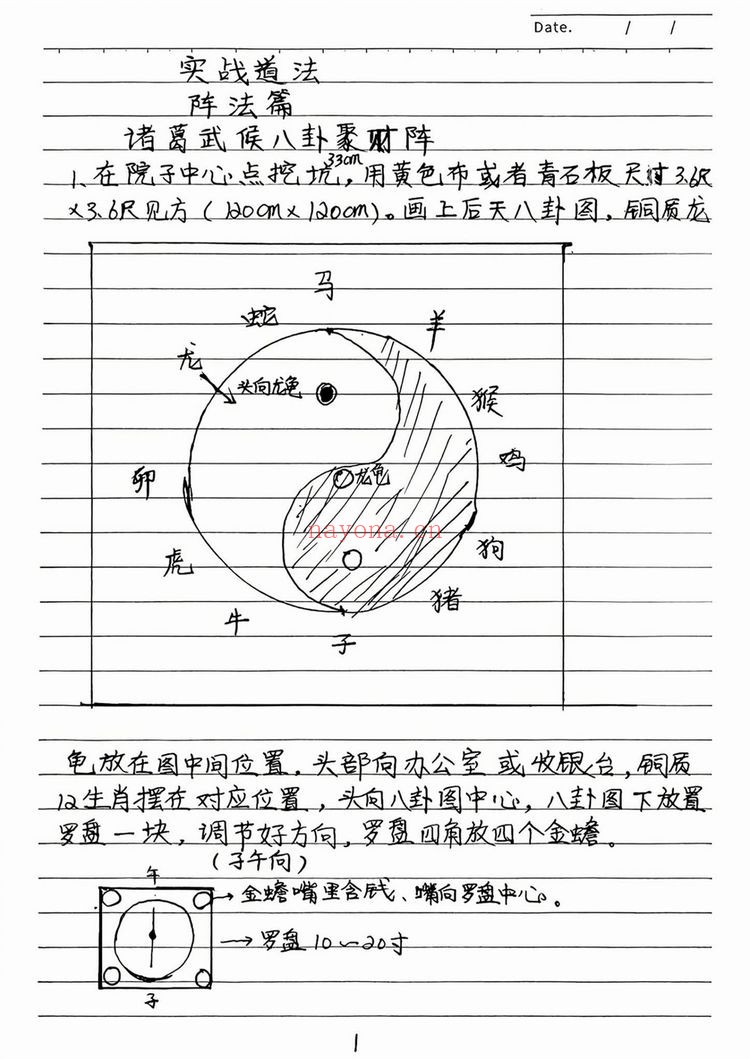 Date. / /
实战道法
阵法篇
诸葛武候八卦聚财阵
33cm
1、在院子中心点挖坑,用黄色布或者青石板尺寸3.6尺
×3.6尺见方(120cm×120cm)。画上后天八卦图,铜质龙
马
蛇
羊
龙
头向龙龟
猴
鸡
龙龟
卯
nayona.cn
狗
虎
猪
牛
子
龟放在图中间位置,头部向办公室或收银台,铜质
12生肖摆在对应位置,头向八卦图中心,八卦图下放置
罗盘一块,调节好方向,罗盘四角放四个金蟾。
(子午向)
午
→金蟾嘴里含钱、嘴向罗盘中心。
→罗盘10~20寸
子
1